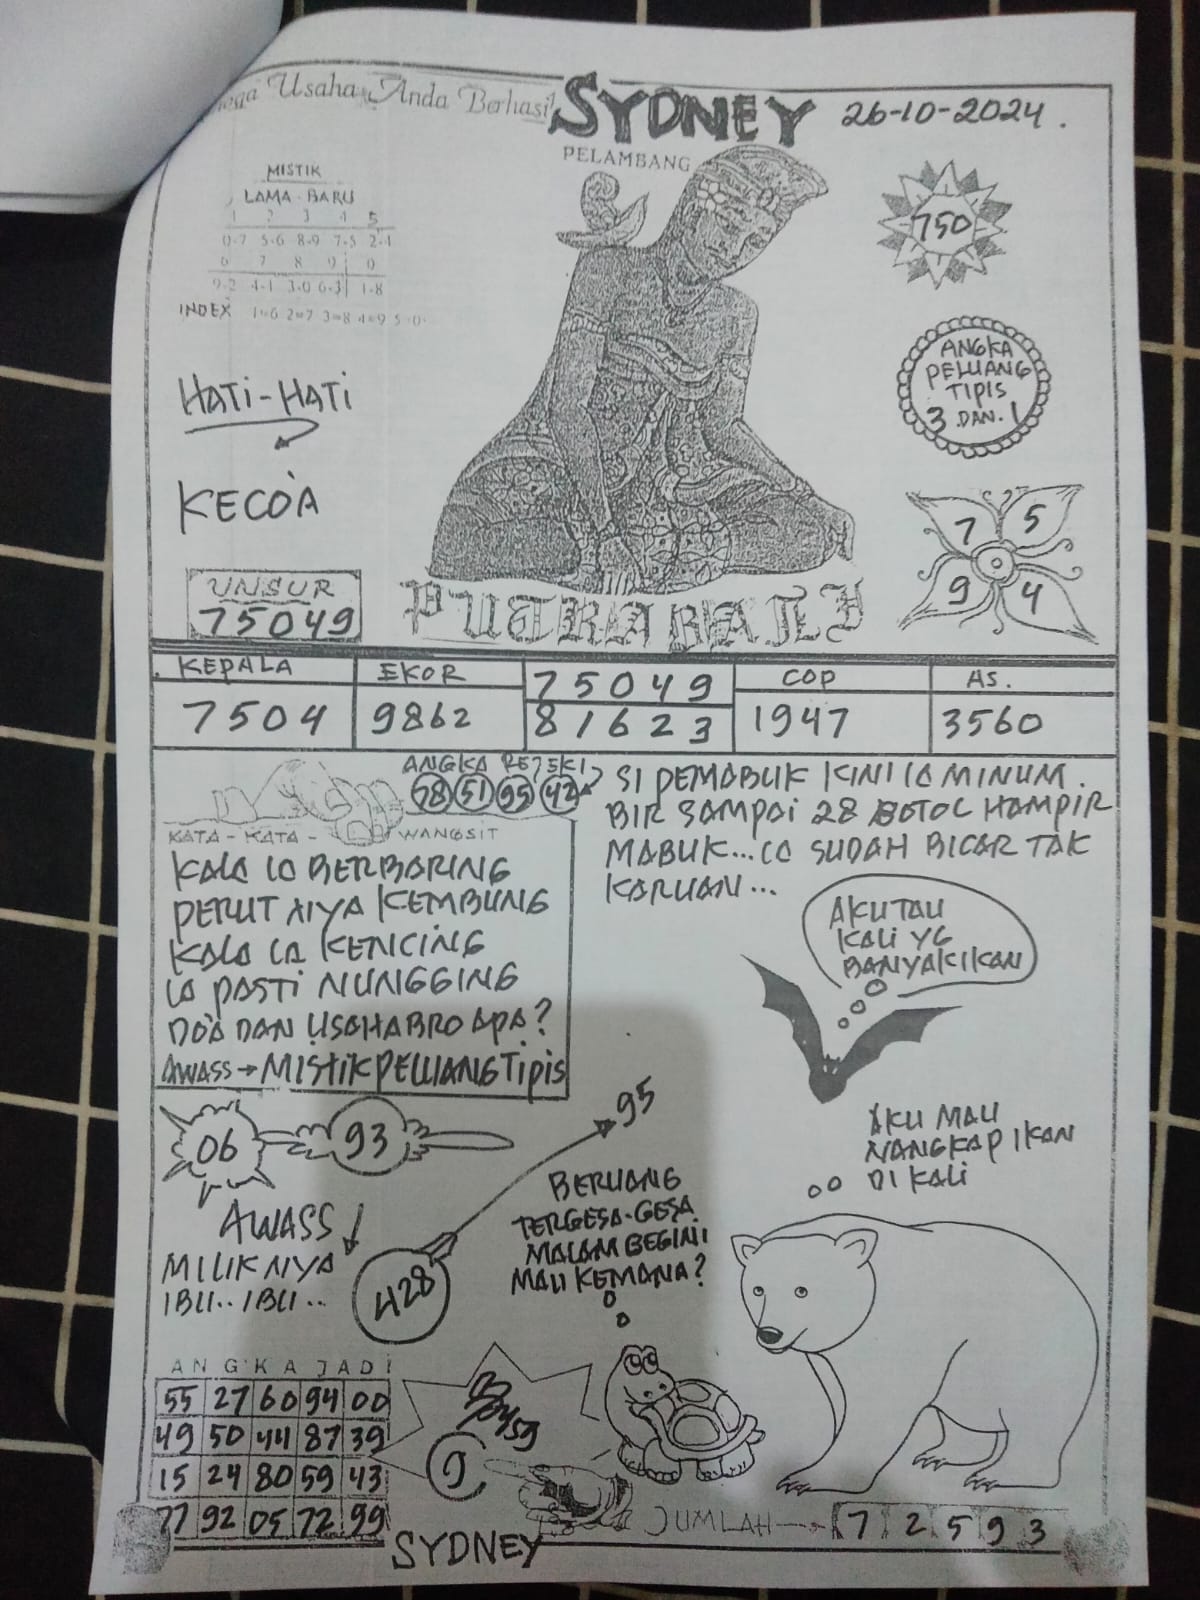 Usaha Anda Berhasil
SYDNEY
26-10-2024.
PELAMBANG
MISTIK
LAMA - BARU
1 2 3 4 5
0-7 5-6 8-9 7-5 2-4
6 7 8 9 0
9-2 4-1 3-0 6-3 1-8
INDEX 1=6 2=7 3=8 4=9 5=0
750
ANGKA
PELUANG
TIPIS
3 DAN. 1
HATI-HATI
KECOA
7 5
9 4
UNSUR
75049
PUTRA BALI
KEPALA
7504
EKOR
9862
75049
81623
COP
1947
AS.
3560
ANGKA REJEKI
78 51 95 42
SI PEMABUK KINI IA MINUM
BIR SAMPAI 28 BOTOL HAMPIR
MABUK... IA SUDAH BICAR TAK
KARUAN...
KATA - KATA - WANGSIT
KALA IA BERBARING
PERUT NYA KEMBUNG
KALA IA KENCING
IA PASTI NUNGGING
DO'A DAN USAHA BRO APA?
AWASS → MISTIK PELUANG TIPIS
AKU TAU
KALI YG
BANYAK IKAN
06
93
95
AKU MAU
NANGKAP IKAN
DI KALI
AWASS
MILIK NYA
IBU.. IBU..
428
BERUANG
TERGESA-GESA
MALAM BEGINI
MAU KEMANA?
ANGKA JADI
55 27 60 94 00
49 50 44 87 39
15 24 80 59 43
77 92 05 72 99
9
SYDNEY
JUMLAH → 7 2 5 9 3